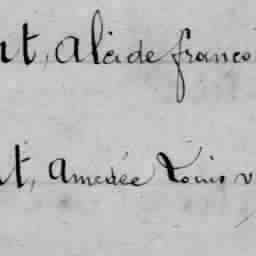 nt, Alcide franco
nt, Amédée Louis v